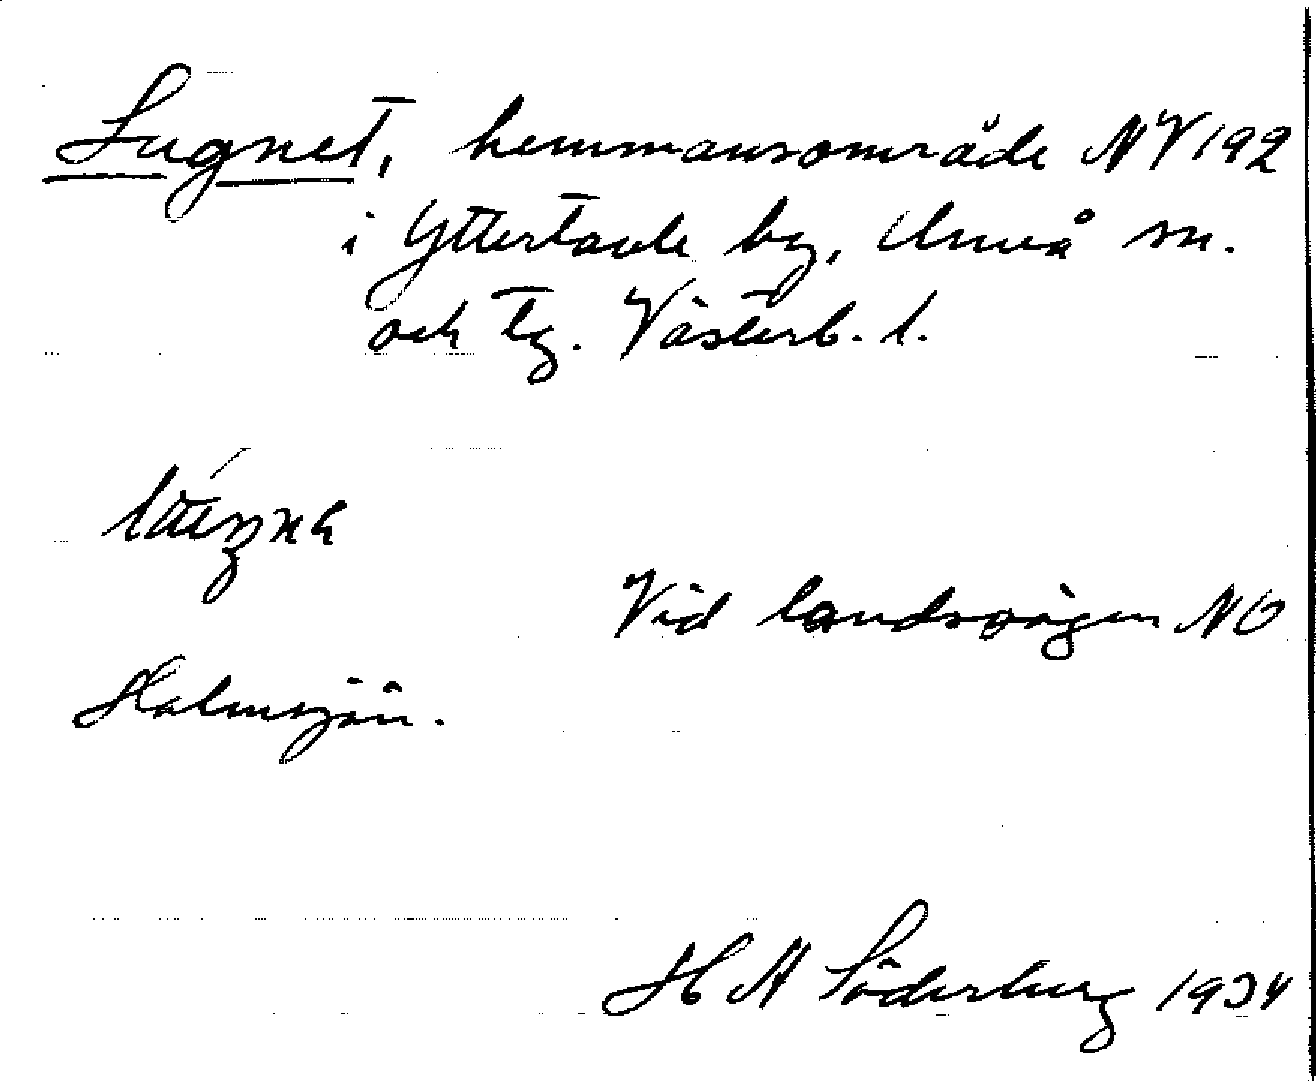 Lugnet, hemmansområde NV 192
i Yttertavle by, Umeå sn.
och tg. Västerb. l.
Vid landsvägen NO
Holmsjön.
H A Söderberg 1934